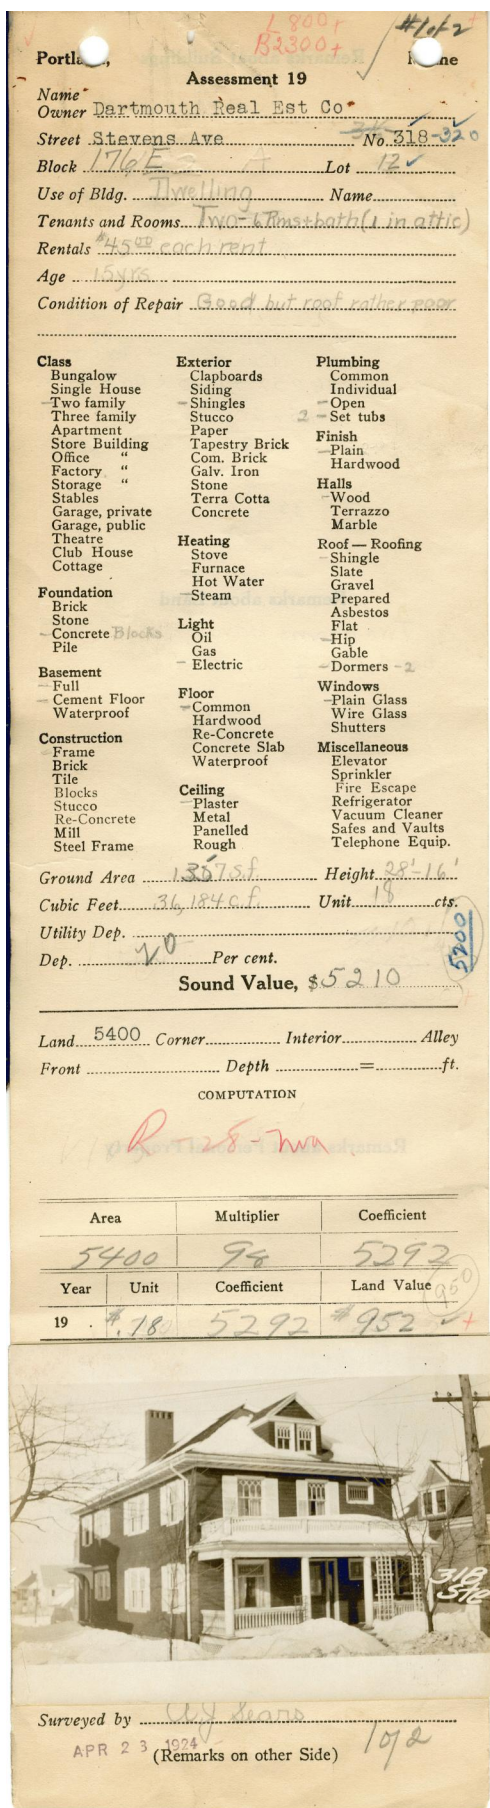 L 800+
B2300+
#1 of 2
Assessment 19
Name
Owner Dartmouth Real Est Co.
Street Stevens Ave No. 318-320
Block 176 E A Lot 12
Use of Bldg. Dwelling Name
Tenants and Rooms Two-6 Rms+bath (1 in attic)
Rentals $45.00 each rent
Age 15 yrs
Condition of Repair Good but roof rather poor
Class
Bungalow
Single House
Two family
Three family
Apartment
Store Building
Office "
Factory "
Storage "
Stables
Garage, private
Garage, public
Theatre
Club House
Cottage
Foundation
Brick
Stone
Concrete Blocks
Pile
Basement
Full
Cement Floor
Waterproof
Construction
Frame
Brick
Tile
Blocks
Stucco
Re-Concrete
Mill
Steel Frame
Exterior
Clapboards
Siding
Shingles
Stucco
Paper
Tapestry Brick
Com. Brick
Galv. Iron
Stone
Terra Cotta
Concrete
Heating
Stove
Furnace
Hot Water
Steam
Light
Oil
Gas
Electric
Floor
Common
Hardwood
Re-Concrete
Concrete Slab
Waterproof
Ceiling
Plaster
Metal
Panelled
Rough
Plumbing
Common
Individual
Open
2 - Set tubs
Finish
Plain
Hardwood
Halls
Wood
Terrazzo
Marble
Roof — Roofing
Shingle
Slate
Gravel
Prepared
Asbestos
Flat
Hip
Gable
Dormers - 2
Windows
Plain Glass
Wire Glass
Shutters
Miscellaneous
Elevator
Sprinkler
Fire Escape
Refrigerator
Vacuum Cleaner
Safes and Vaults
Telephone Equip.
Ground Area 1357 s.f. Height 28'-16'
Cubic Feet 36,184 c.f. Unit 18 cts.
Utility Dep.
Dep. 20 Per cent.
5200
Sound Value, $5210
Land 5400 Corner Interior Alley
Front Depth = ft.
COMPUTATION
Area Multiplier Coefficient
5400 98 5292
Year Unit Coefficient Land Value
950
19 . $.180 5292 $952
318
Surveyed by A J Sears
APR 23 1924
(Remarks on other Side)
1 of 2